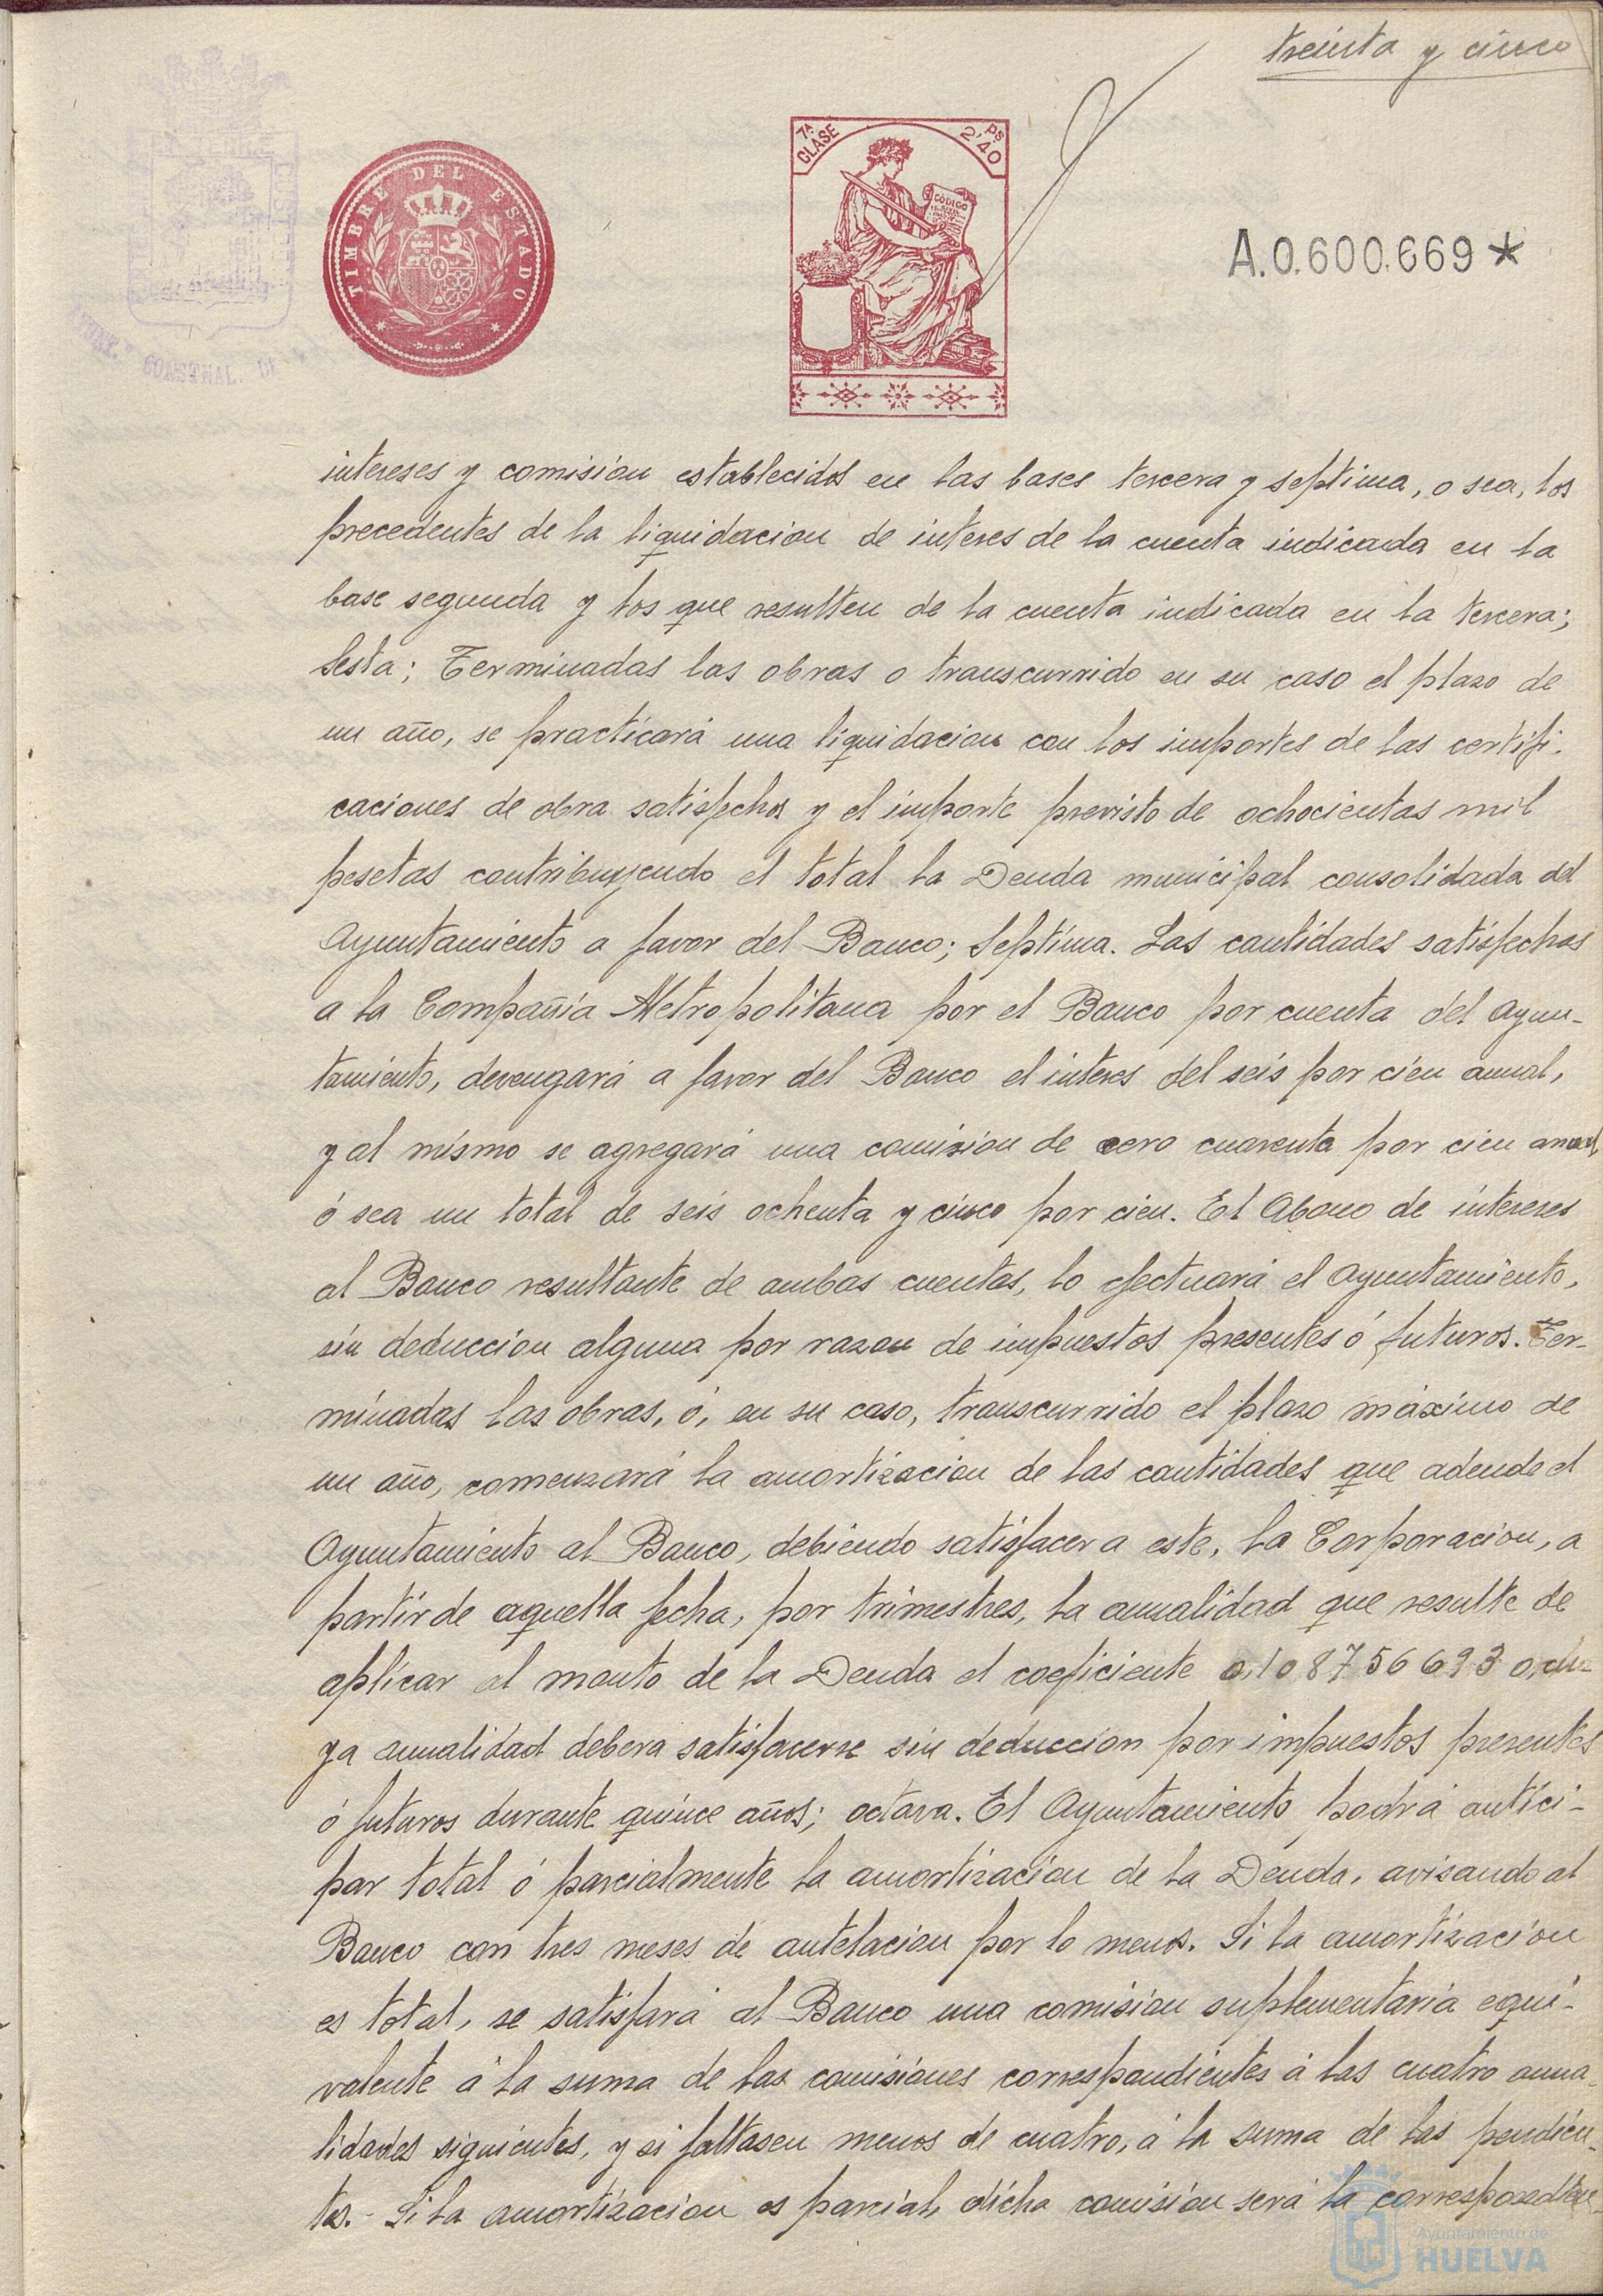 treinta y cinco
TIMBRE DEL ESTADO
7ª CLASE
2'40 Ps
CÓDIGO
A.0.600.669*
AYUNT.º CONSTNAL. DE
intereses y comisión establecidos en las bases tercera y septima, o sea, los
precedentes de la liquidacion de interes de la cuenta indicada en la
base segunda y los que resulten de la cuenta indicada en la tercera;
Sesta; Terminadas las obras o transcurrido en su caso el plazo de
un año, se practicará una liquidacion con los importes de las certifi-
caciones de obra satisfechos y el importe previsto de ochocientas mil
pesetas contribuyendo el total la Deuda municipal consolidada del
Ayuntamiento a favor del Banco; Septima. Las cantidades satisfechas
a la Compañia Metropolitana por el Banco por cuenta del Ayun-
tamiento, devengará a favor del Banco el interes del seis por cien anual,
y al mismo se agregará una comision de cero cuarenta por cien anual,
ó sea un total de seis ochenta y cinco por cien. El Abono de intereses
al Banco resultante de ambas cuentas, lo efectuará el Ayuntamiento,
sin deduccion alguna por razon de impuestos presentes ó futuros. Ter-
minadas las obras, ó, en su caso, transcurrido el plazo máximo de
un año, comenzará la amortizacion de las cantidades que adeude el
Ayuntamiento al Banco, debiendo satisfacer a este, la Corporacion, a
partir de aquella fecha, por trimestres, la anualidad que resulte de
aplicar al monto de la Deuda el coeficiente 0,1087566930, cu-
ya anualidad debera satisfacerse sin deduccion por impuestos presentes
ó futuros durante quince años; octava. El Ayuntamiento podrá antici-
par total ó parcialmente la amortizacion de la Deuda, avisando al
Banco con tres meses de antelacion por lo menos. Si la amortizacion
es total, se satisfará al Banco una comision suplementaria equi-
valente á la suma de las comisiones correspondientes á las cuatro anua-
lidades siguientes, y si faltasen menos de cuatro, á la suma de las pendien-
tes. - Si la amortizacion es parcial, dicha comision será la correspondien-
Ayuntamiento de
HUELVA